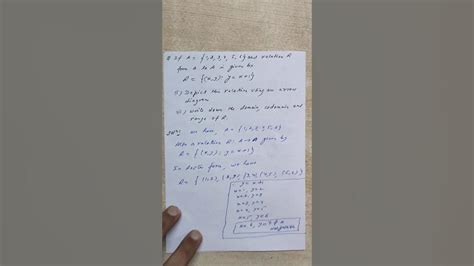 If A = {1, 2, 3, 4, 5, 6} and relation R
from A to A is given by
R = {(x, y): y = x+1}
i) Depict this relation using an arrow
diagram
ii) Write down the domain, codomain and
range of R.
we have, A = {1, 2, 3, 4, 5, 6}
a relation R: A→A given by
R = {(x, y): y = x+1}
In Roster form, we have
R = {(1,2), (2,3), (3,4), (4,5), (5,6)}
x=2, y=3
x=3, y=4
x=4, y=5
x=5, y=6